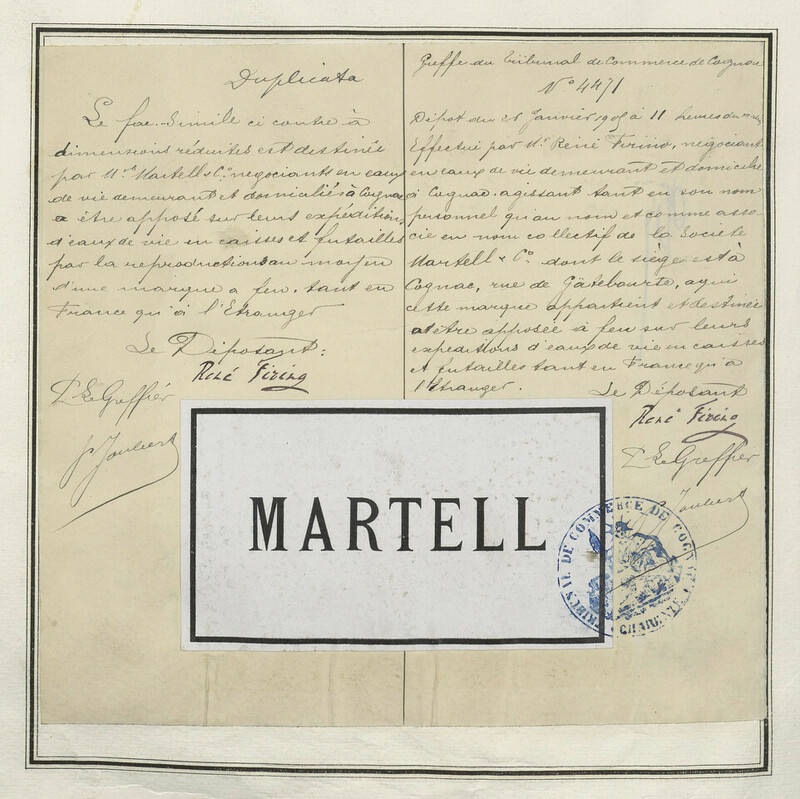 Duplicata
Le fac-Simile ci contre à
dimensions réduites est destinée
par Mrs Martell & Co. negociants en eaux
de vie demeurant et domiciliés à Cognac
a être apposé sur leurs expéditions
d'eaux de vie en caisses et futailles
par la reproduction au moyen
d'une marque a feu, tant en
France qu'à l'Etranger
Le Déposant:
René Firino
Le Greffier
Joubert
Greffe du Tribunal de Commerce de Cognac
No 4471
Dépot du Janvier à 11 heures du
Effectué par Mr. René Firino, négociant
en eaux de vie demeurant et domicilié
à Cognac. agissant tant en son nom
personnel qu'au nom et comme asso-
cié en nom collectif de la Société
Martell & Co. dont le siège est à
Cognac, rue de Gâtebourse, a qui
cette marque appartient et destinée
à être apposée à feu sur leurs
expeditions d'eaux de vie en caisses
et futailles tant en France qu'à
l'Etranger.
Le Déposant
René Firino
Le Greffier
Joubert
MARTELL
TRIBUNAL DE COMMERCE DE COGNAC
CHARENTE